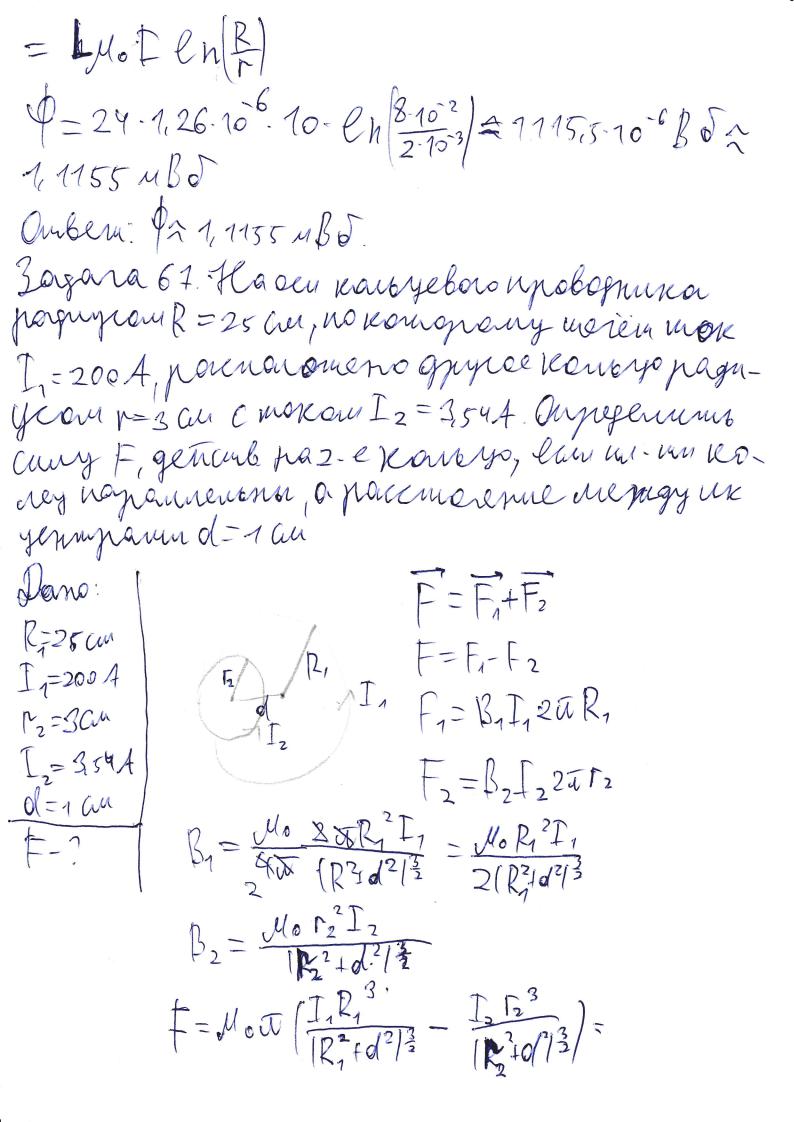 = Lμ₀I ln(R/r)
Φ = 24·1,26·10⁻⁶·10·ln(8·10⁻²/2·10⁻³) ≈ 1115,5·10⁻⁶ Вб ≈
1,1155 мВб
Ответ: Φ ≈ 1,1155 мВб.
Задача 67. На оси кольцевого проводника
радиусом R = 25 см, по которому течёт ток
I₁ = 200 А, расположено другое кольцо ради-
усом r = 3 см с током I₂ = 3,54 А. Определить
силу F, действ на 2-е кольцо, если пл-ти ко-
лец параллельны, а расстояние между их
центрами d = 1 см
Дано:
R₁=25 см
I₁=200 А
r₂=3см
I₂=3,54 А
d=1 см
F - ?
r₂ R₁ d I₁ I₂
F⃗ = F⃗₁ + F⃗₂
F = F₁ - F₂
F₁ = B₁I₁2πR₁
F₂ = B₂I₂2πr₂
B₁ = μ₀/4π 2 · 2πR₁²I₁/(R²+d²)^(3/2) = μ₀R₁²I₁/2(R₁²+d²)^(3/2)
B₂ = μ₀r₂²I₂/(r₂²+d²)^(3/2)
F = μ₀π(I₁R₁³/(R₁²+d²)^(3/2) - I₂r₂³/(r₂²+d²)^(3/2)) =